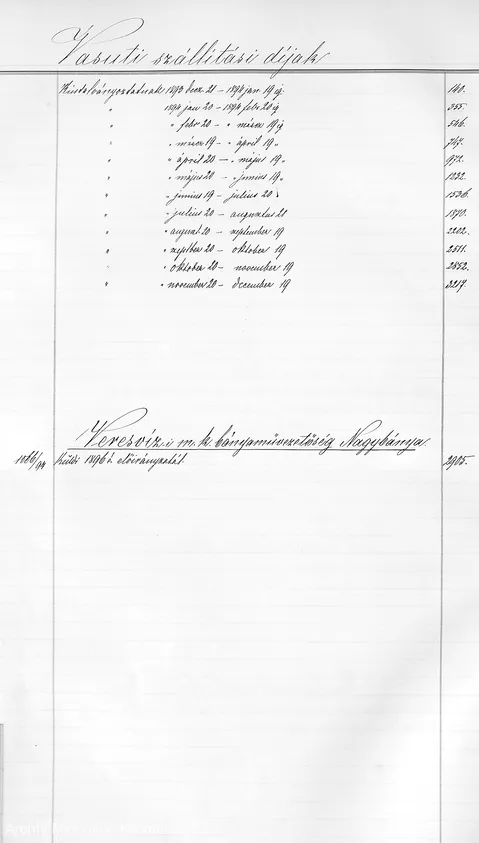 Vasuti szállitási díjak
Kimutatványostatnak 1893 decz. 21 – 1894 jan. 19 ig 140.
" 1894 jan 20 – 1894 febr 20 ig 355.
" " febr 20 – " márcz 19 ig 546.
" " márcz 19 – " ápril 19 " 747.
" " ápril 20 – " május 19 " 972.
" " május 20 – " junius 19 " 1232.
" " junius 19 – julius 20 " 1536.
" " julius 20 – augusztus 20 1870.
" " august 20 – september 19 2202.
" " septber 20 – oktober 19 2511.
" " oktober 20 – november 19 2852.
" " november 20 – december 19 3217.
Veresvíz i m. k. bányamüvezetöség Nagybánya
1086/94 Küldi 1896 i. elöirányzatát. 2905.